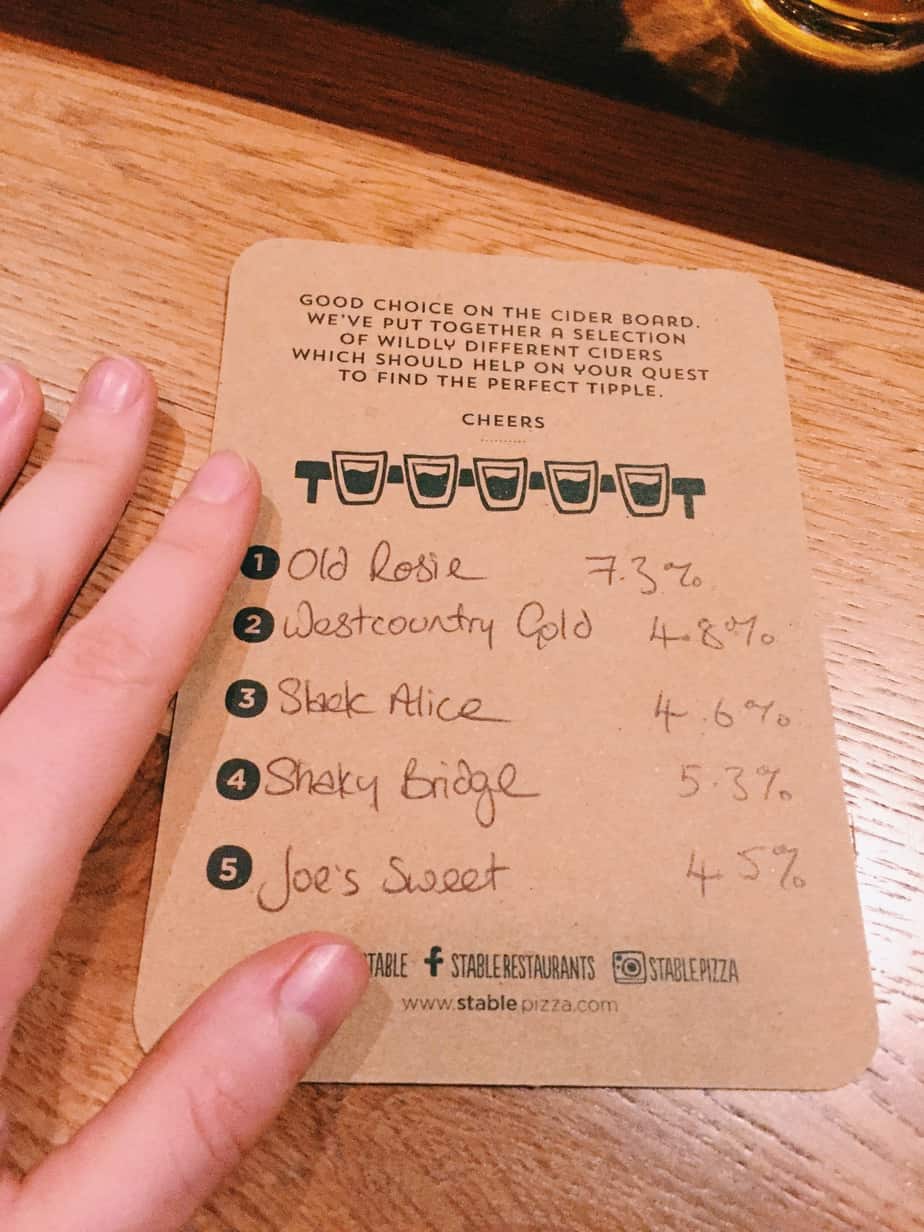 GOOD CHOICE ON THE CIDER BOARD.
WE'VE PUT TOGETHER A SELECTION
OF WILDLY DIFFERENT CIDERS
WHICH SHOULD HELP ON YOUR QUEST
TO FIND THE PERFECT TIPPLE.
CHEERS
1 Old Rosie 7.3%
2 Westcountry Gold 4.8%
3 Slack Alice 4.6%
4 Shaky Bridge 5.3%
5 Joe's Sweet 4.5%
TABLE f STABLERESTAURANTS STABLEPIZZA
www.stablepizza.com